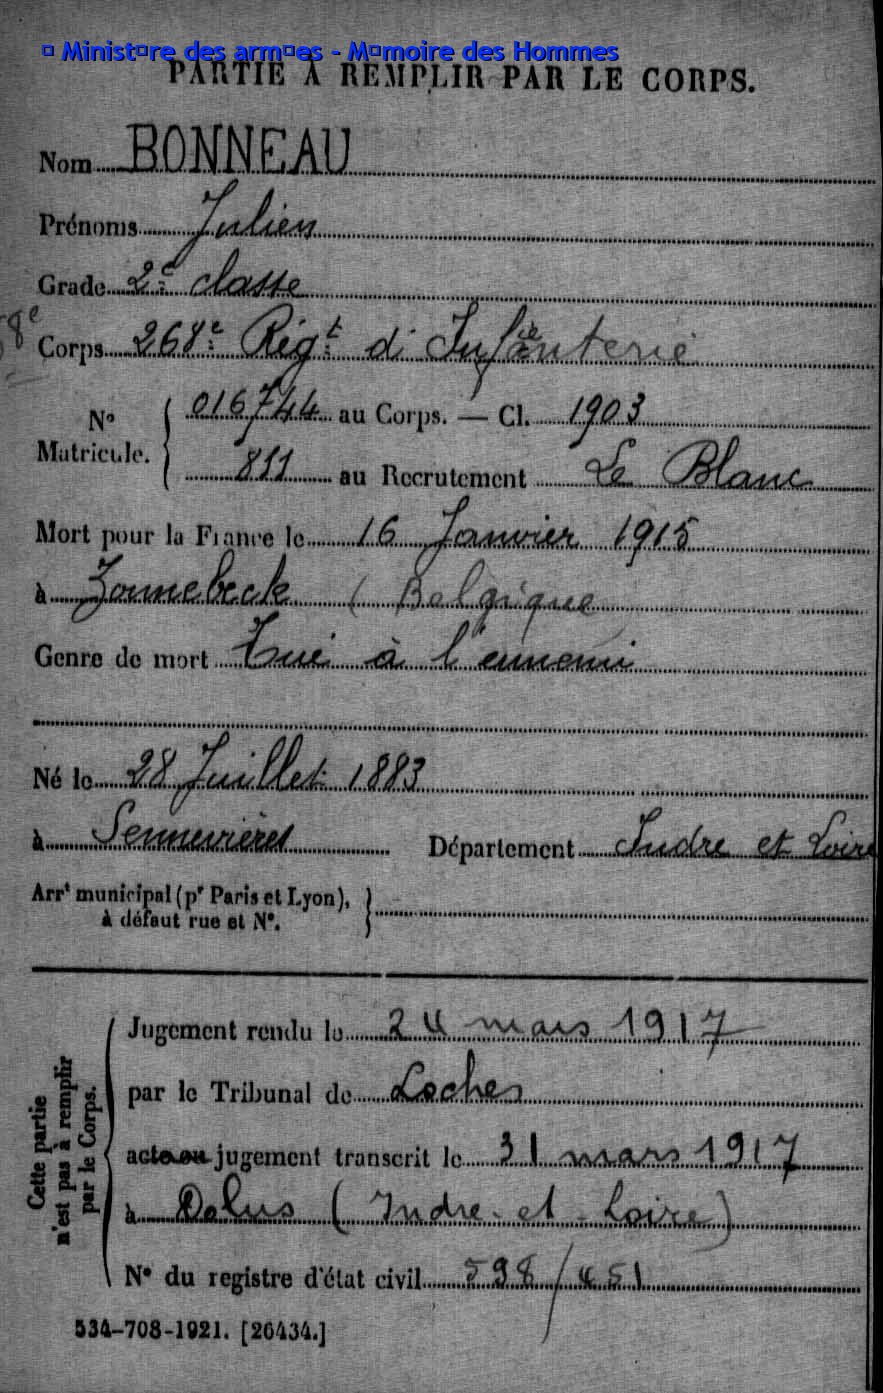 © Ministère des armées - Mémoire des Hommes
PARTIE À REMPLIR PAR LE CORPS.
Nom BONNEAU
Prénoms Julien
Grade 2e classe
8e
Corps 268e Régt d'Infanterie
No Matricule. { 016744 au Corps. — Cl. 1903
811 au Recrutement Le Blanc
Mort pour la France le 16 Janvier 1915
à Zonnebeck (Belgique
Genre de mort Tué à l'ennemi
Né le 28 Juillet 1883
à Sennevières Département Indre et Loire
Arrt municipal (pr Paris et Lyon), }
à défaut rue et No.
Cette partie
n'est pas à remplir
par le Corps.
Jugement rendu le 24 mars 1917
par le Tribunal de Loches
acte ou jugement transcrit le 31 mars 1917
à Dolus (Indre-et-Loire)
No du registre d'état civil 598/451
534-708-1921. [26434.]